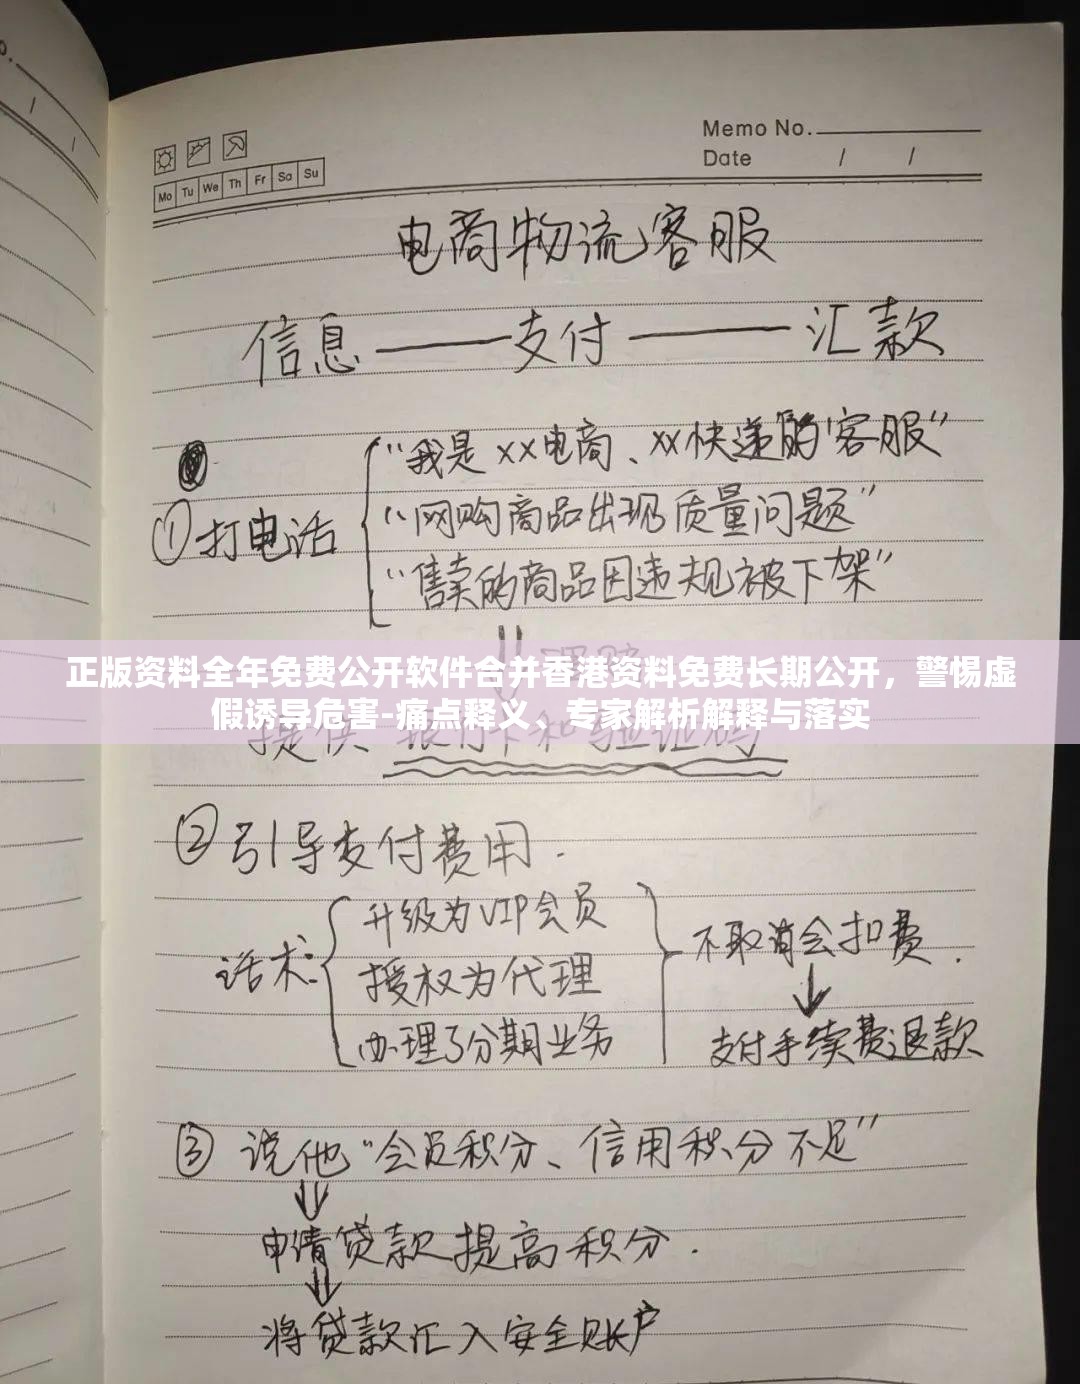 Memo No.
Date / /
Mo Tu We Th Fr Sa Su
电商物流客服
信息——支付——汇款
①打电话
“我是xx电商、xx快递的‘客服”
“网购商品出现质量问题”
“售卖的商品因违规被下架”
正版资料全年免费公开软件合并香港资料免费长期公开，警惕虚
假诱导危害-痛点释义、专家解析解释与落实
提供 银行卡和验证码
②引导支付费用.
话术:
升级为VIP会员
授权为代理
办理了分期业务
不取消会扣费.
支付手续费退款
③说他“会员积分、信用积分不足”
申请贷款提高积分.
将贷款汇入安全账户